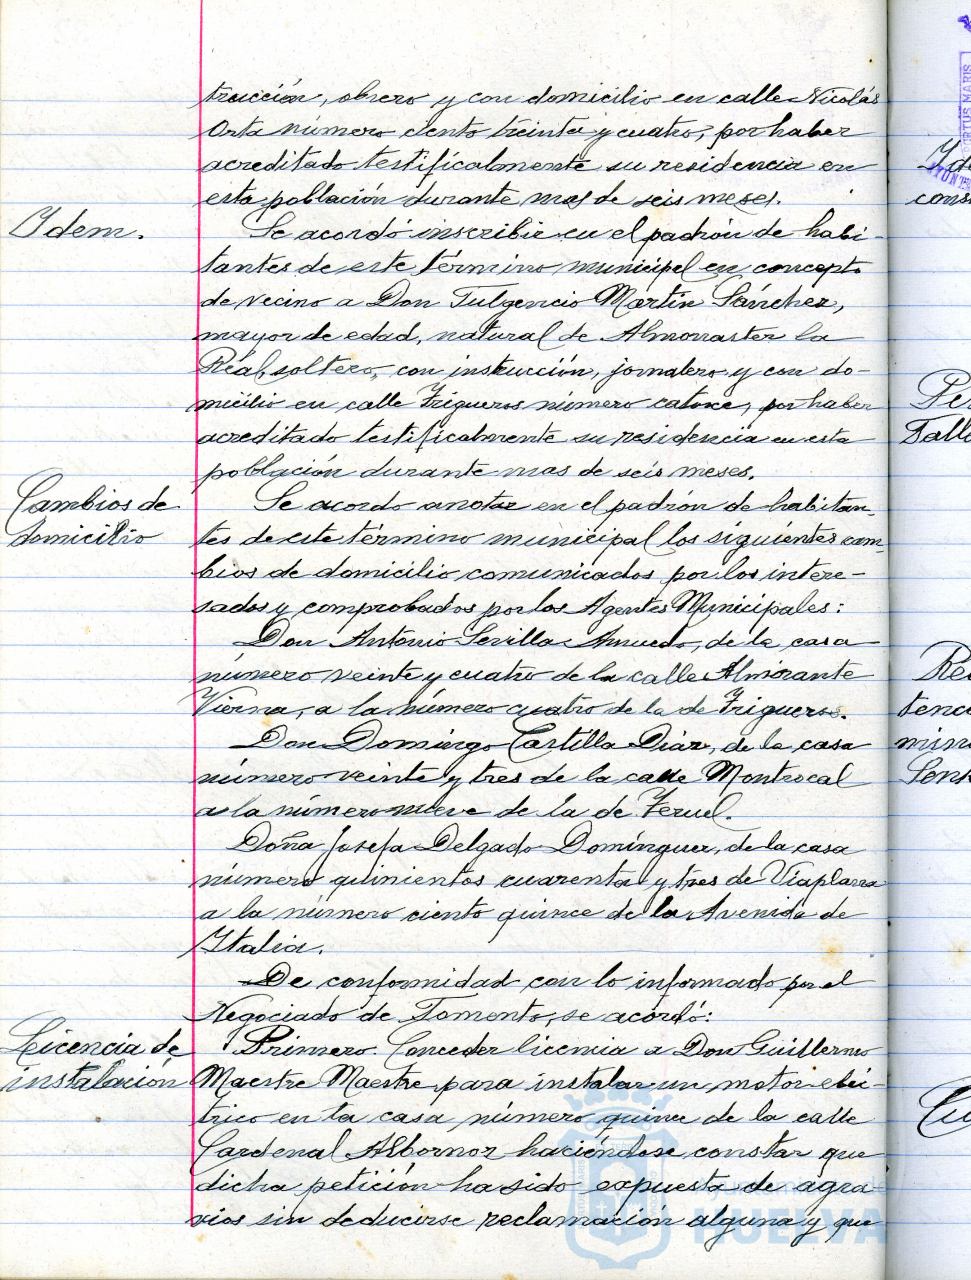 trucción, obrero y con domicilio en calle Nicolás
Orta número ciento treinta y cuatro, por haber
acreditado testificalmente su residencia en
esta población durante mas de seis meses.
Idem.
Se acordó inscribir en el padrón de habi-
tantes de este término municipal en concepto
de vecino a Don Fulgencio Martín Sánchez,
mayor de edad, natural de Almonaster la
Real, soltero, con instrucción, jornalero y con do-
micilio en calle Trigueros número catorce, por haber
acreditado testificalmente su residencia en esta
población durante mas de seis meses.
Cambios de
domicilio
Se acordo anotar en el padrón de habitan-
tes de este término municipal los siguientes cam-
bios de domicilio comunicados por los intere-
sados y comprobados por los Agentes Municipales:
Don Antonio Sevilla, de la casa
número veinte y cuatro de la calle Almirante
Vierna, a la número cuatro de la de Trigueros.
Don Domingo Castilla Díaz, de la casa
número veinte y tres de la calle Montrocal
a la número nueve de la de Teruel.
Doña Josefa Delgado Domínguez, de la casa
número quinientos cuarenta y tres de Viaplana
a la número ciento quince de la Avenida de
Italia.
De conformidad con lo informado por el
Negociado de Fomento, se acordó:
Licencia de
instalación
Primero. Conceder licencia a Don Guillermo
Maestre Maestre para instalar un motor eléc-
trico en la casa número quince de la calle
Cardenal Albornoz haciéndose constar que
dicha petición ha sido expuesta de agra-
vios sin deducirse reclamación alguna y que
Ayuntamiento de
HUELVA